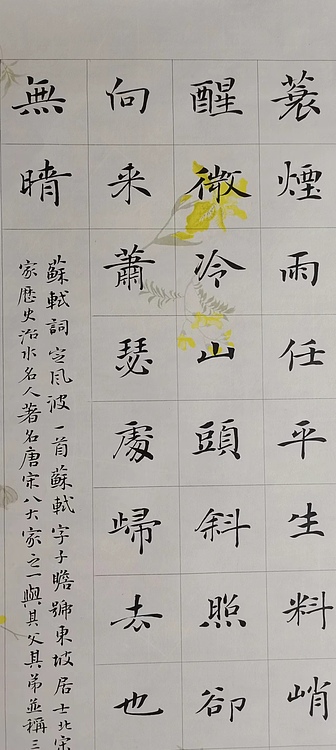 蓑煙雨任平生料峭
醒微冷山頭斜照卻
向来蕭瑟處歸去也
無晴
蘇軾詞定風波一首蘇軾字子瞻號東坡居士北宋
家歷史治水名人著名唐宋八大家之一與其父其弟並稱三